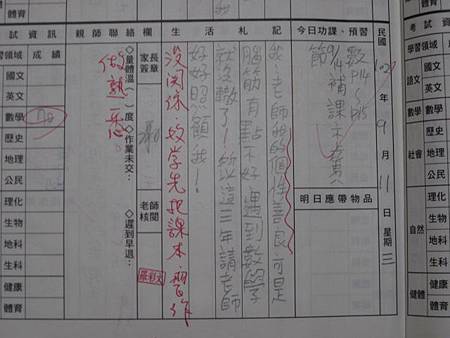 考試
學習領域
國文
英文
數學
歷史
社會
地理
公民
理化
自然
生物
地科
生科
健康
健體
體育
民國102年9月11日 星期三
今日功課、預習
數P14~P15
9/14補課
節
明日應帶物品
生活札記
老師我的個性善良,可是
腦筋有點不好,遇到數學
就沒轍了!所以這三年請老師
好好照顧我!
沒關係,數學先把課本、習作
做熟一
親師聯絡欄
家長簽章
老師核閱
◇量體溫( )度 ◇作業未交: ◇遲到早退:
體育
試資訊
學習領域 成績
國文
英文
數學 78
歷史
地理
公民
理化
生物
地科
生科
健康
體育